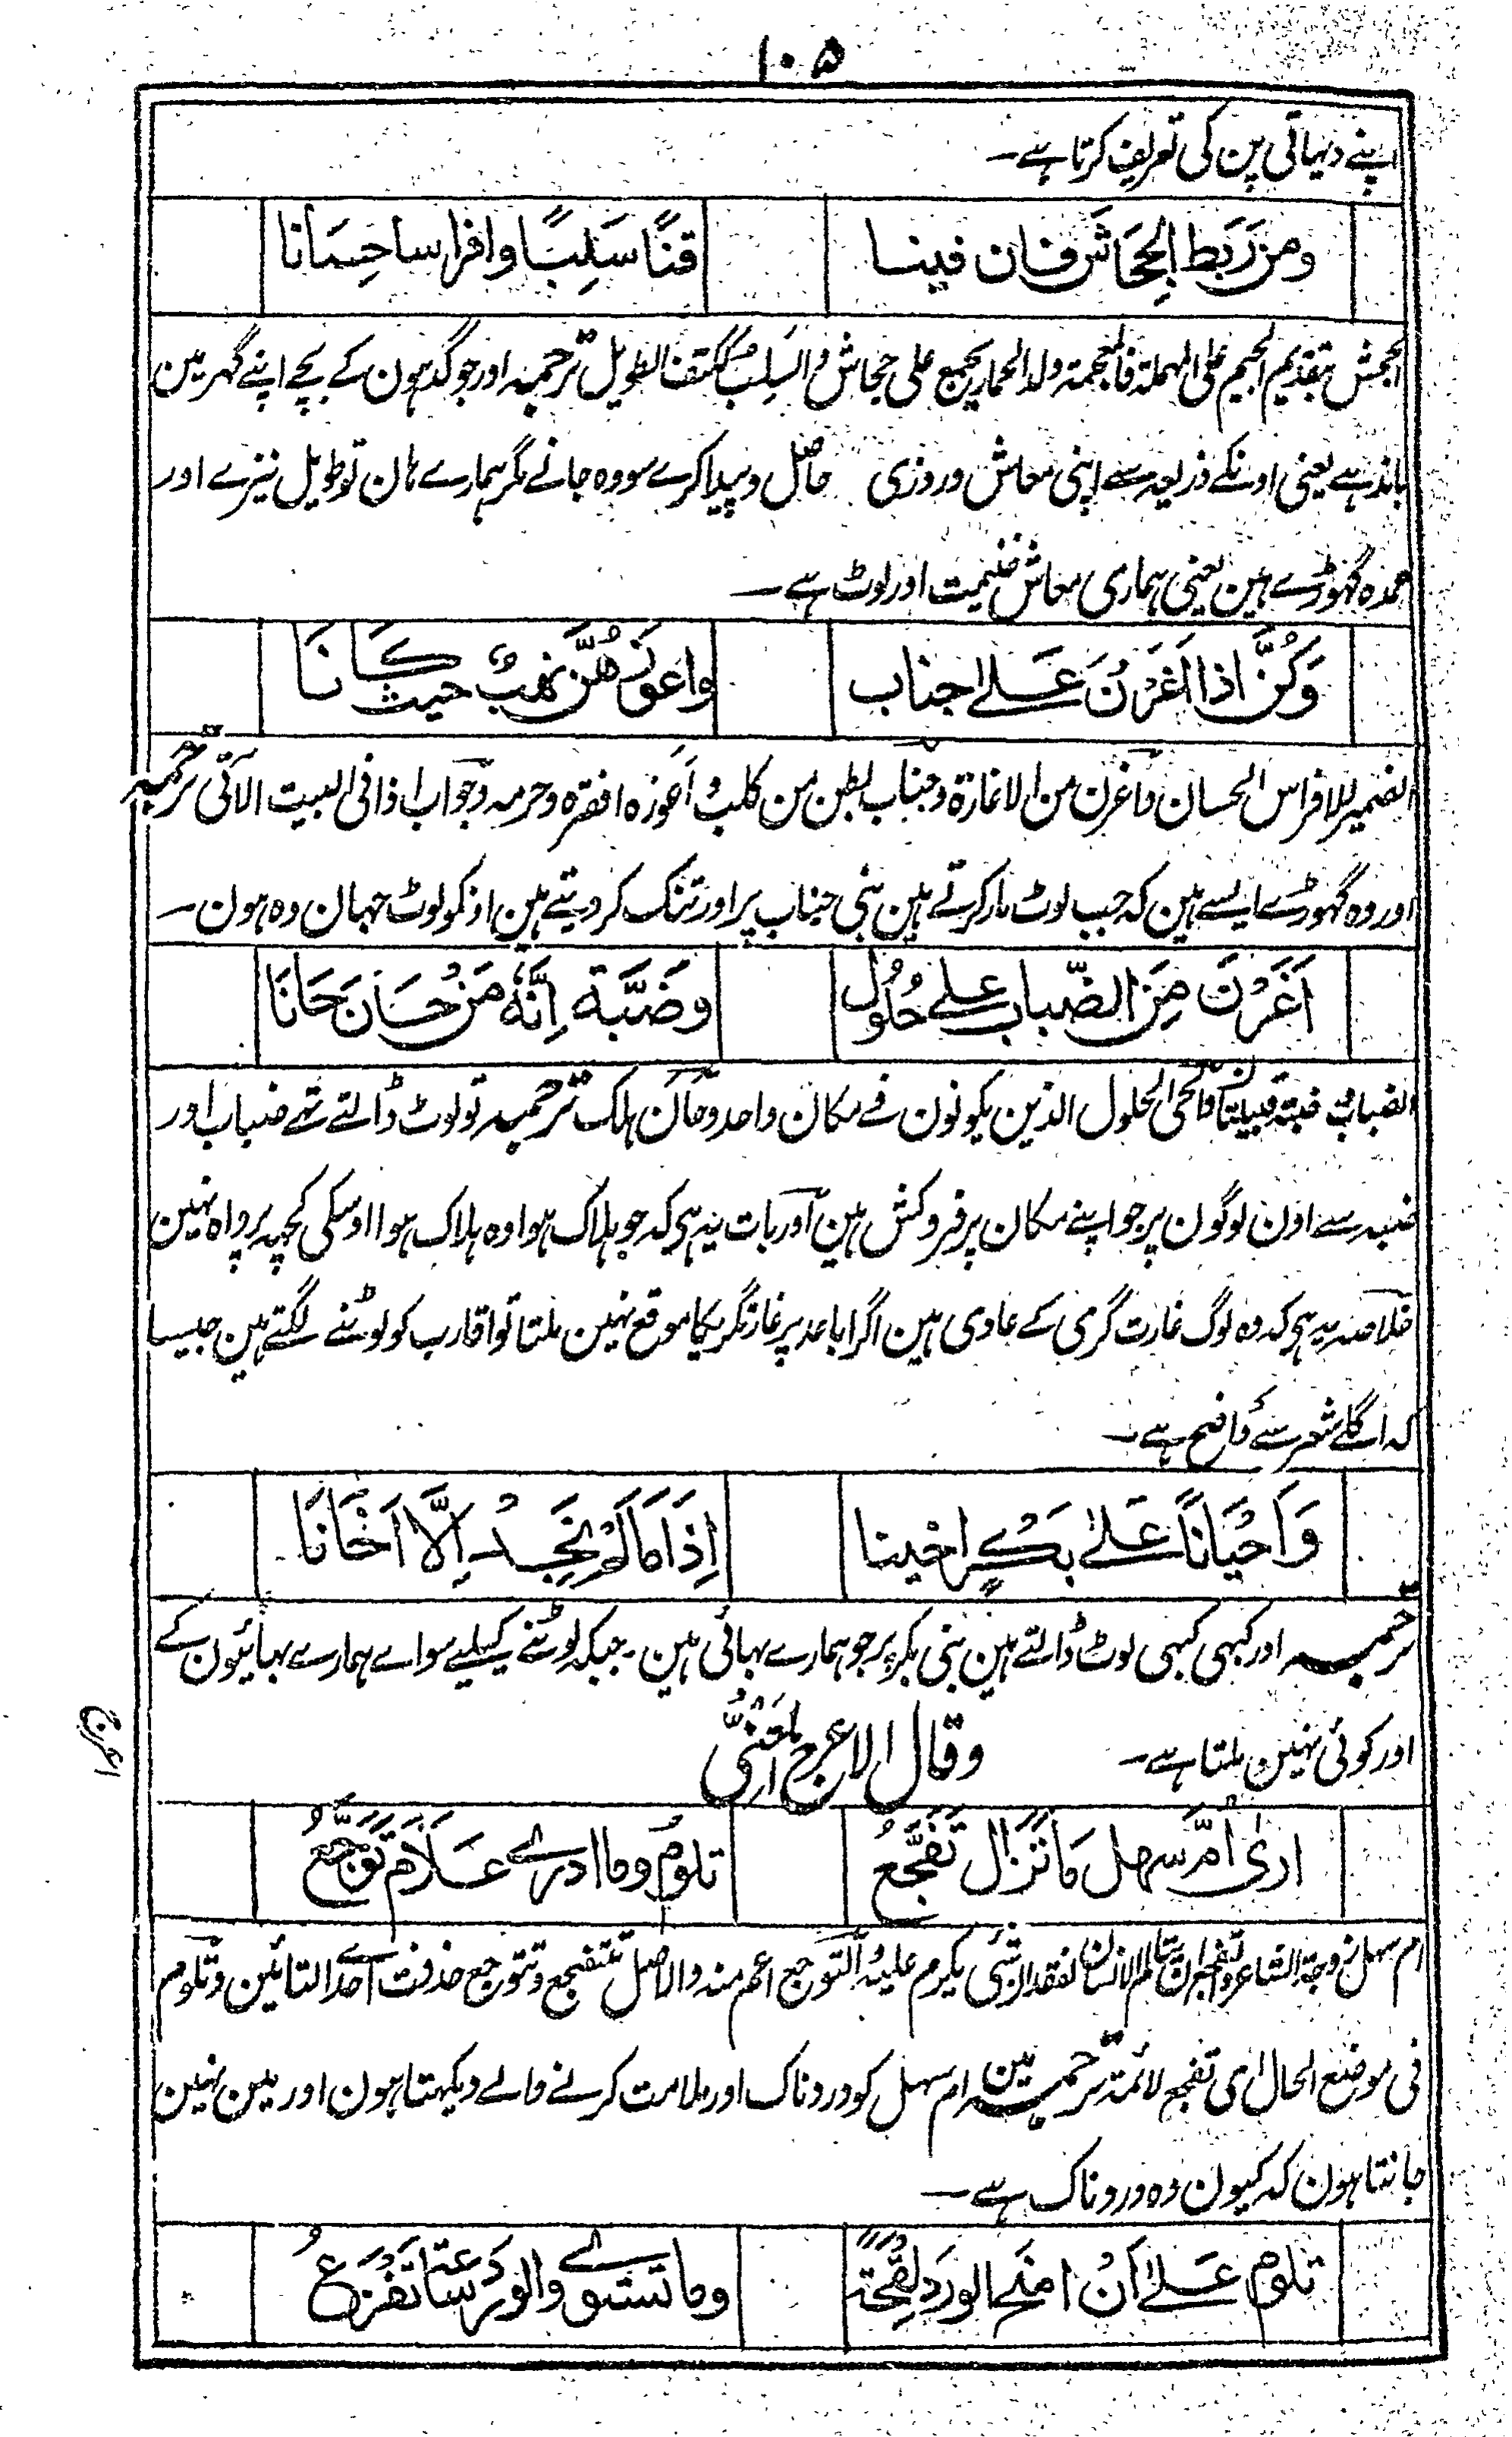 ۱۰۵
اپنے دیہاتی پن کی تعریف کرتا ہے۔
ومن رَبَط الجِحَاشَ فان فینا قنًا سَلِبًا وافراسا حِسَانا
الجحش بتقدیم الجیم علی المہملۃ فالمعجمۃ ولد الحمار یجمع علی جحاش والسَلِبُ ککتف الطویل ترجمہ اور جو گدہون کے بچے اپنے گھر مین
باندہے یعنی اونکے ذریعہ سے اپنی معاش و روزی حاصل و پیدا کرے سو وہ جانے مگر ہمارے ہان تو طویل نیزے اور
عمدہ گہوڑے ہین یعنی ہماری معاش غنیمت اور لوٹ ہے۔
وَکُنَّ اذا اَغَرْنَ عَلے جناب واعوزَھُنَّ نھبٌ حیث کَانَا
الضمیر للافراس الحسان واغرن من الاغارۃ وجناب بطن من کلب واَعوزہ افقرہ وحرمہ وجواب اذا فی البیت الآتی ترجمہ
اور وہ گہوڑے ایسے ہین کہ جب لوٹ مار کرتے ہین بنی جناب پر اور تنگ کر دیتے ہین اونکو لوٹ جہان وہ ہون۔
اَغَرْنَ مِنَ الضّباب علے حُلُولٍ وضَبَّۃ اِنَّہٗ مَنْ حَانَ حَانَا
الضبابُ ضبۃ قبیلتان والحی الحلول الذین یکونون فے مکان واحد وحَانَ ہلک ترجمہ تو لوٹ ڈالتے تہے ضباب اور
ضبہ سے اون لوگون پر جو اپنے مکان پر فروکش ہین اور بات یہ ہی کہ جو ہلاک ہوا وہ ہلاک ہوا اوسکی کچہہ پرواہ نہین
خلاصہ یہ ہی کہ وہ لوگ غارت گری کے عادی ہین اگر اباعد پر غارتگریکا موقع نہین ملتا تو اقارب کو لوٹنے لگتے ہین جیسا
کہ اگلے شعر سے واضح ہے۔
وَاَحْیَانًا عَلٰے بَکْرٍ اخینا اِذَا مَا لَمْ نَجِدْ اِلَّا اَخَانَا
ترجمہ اور کبہی کبہی لوٹ ڈالتے ہین بنی بکر پر جو ہمارے بہائی ہین۔ جبکہ لوٹنے کیلیے سواے ہمارے بہائیون کے
اور کوئی نہین ملتا ہے۔ وقال الاعرج المَعْنِیُّ
اعرج
اریٰ اُمَّ سھل مَا تَزَال تَفَجَّعُ تلومُ وما ادرے عَلَامَ تَوَجَّعُ
ام سہل زوجۃ الشاعر والتفجع ان یتالم الانسان لفقدان شیٔ یکرم علیہ والتوجع اعم منہ والاصل تتفجع وتتوجع حذفت احدے التائین وتلوم
فی موضع الحال ای تفجع لائمۃ ترجمہ مین ام سہل کو دردناک اور ملامت کرنے والے دیکہتا ہون اور مین نہین
جانتا ہون کہ کیون وہ دردناک ہے۔
تلوم عَلے اَنْ امنَح الوَردَ لِقْحَۃً وما تستوے والوردَ ساعۃَ تَفْزَعُ